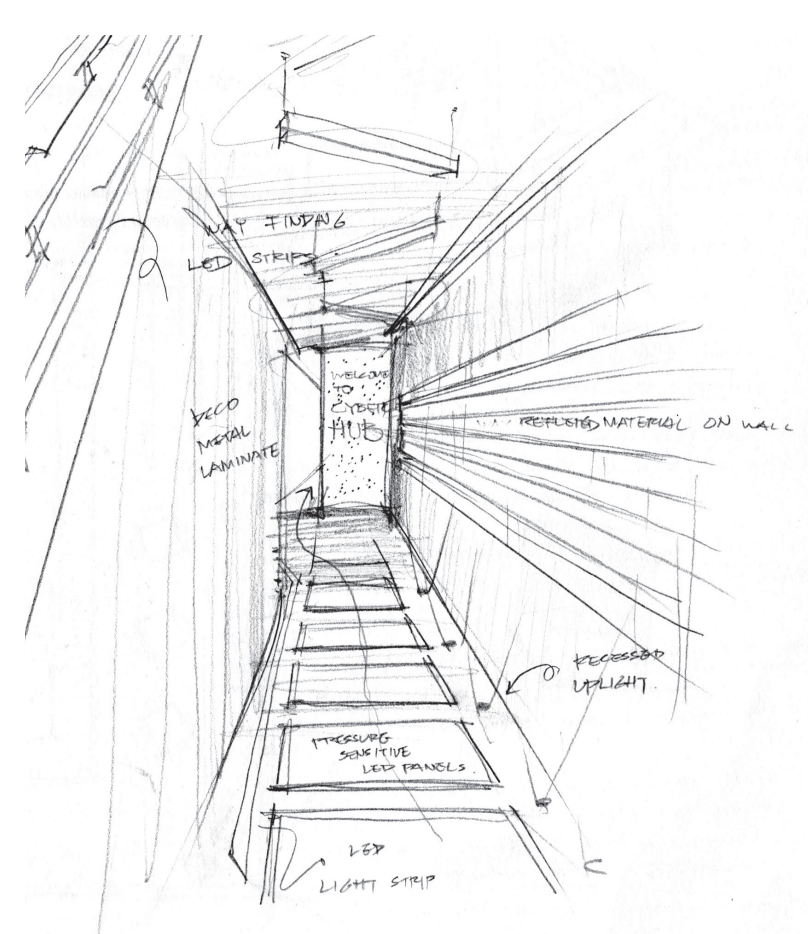 WAY FINDING
LED STRIPS.
WELCOME
TO
CYBER
HUB
DECO
METAL
LAMINATE
REFLETED MATERIAL ON WALL
RECESSED
UPLIGHT.
PRESSURE
SENSITIVE
LED PANELS.
LED
LIGHT STRIP